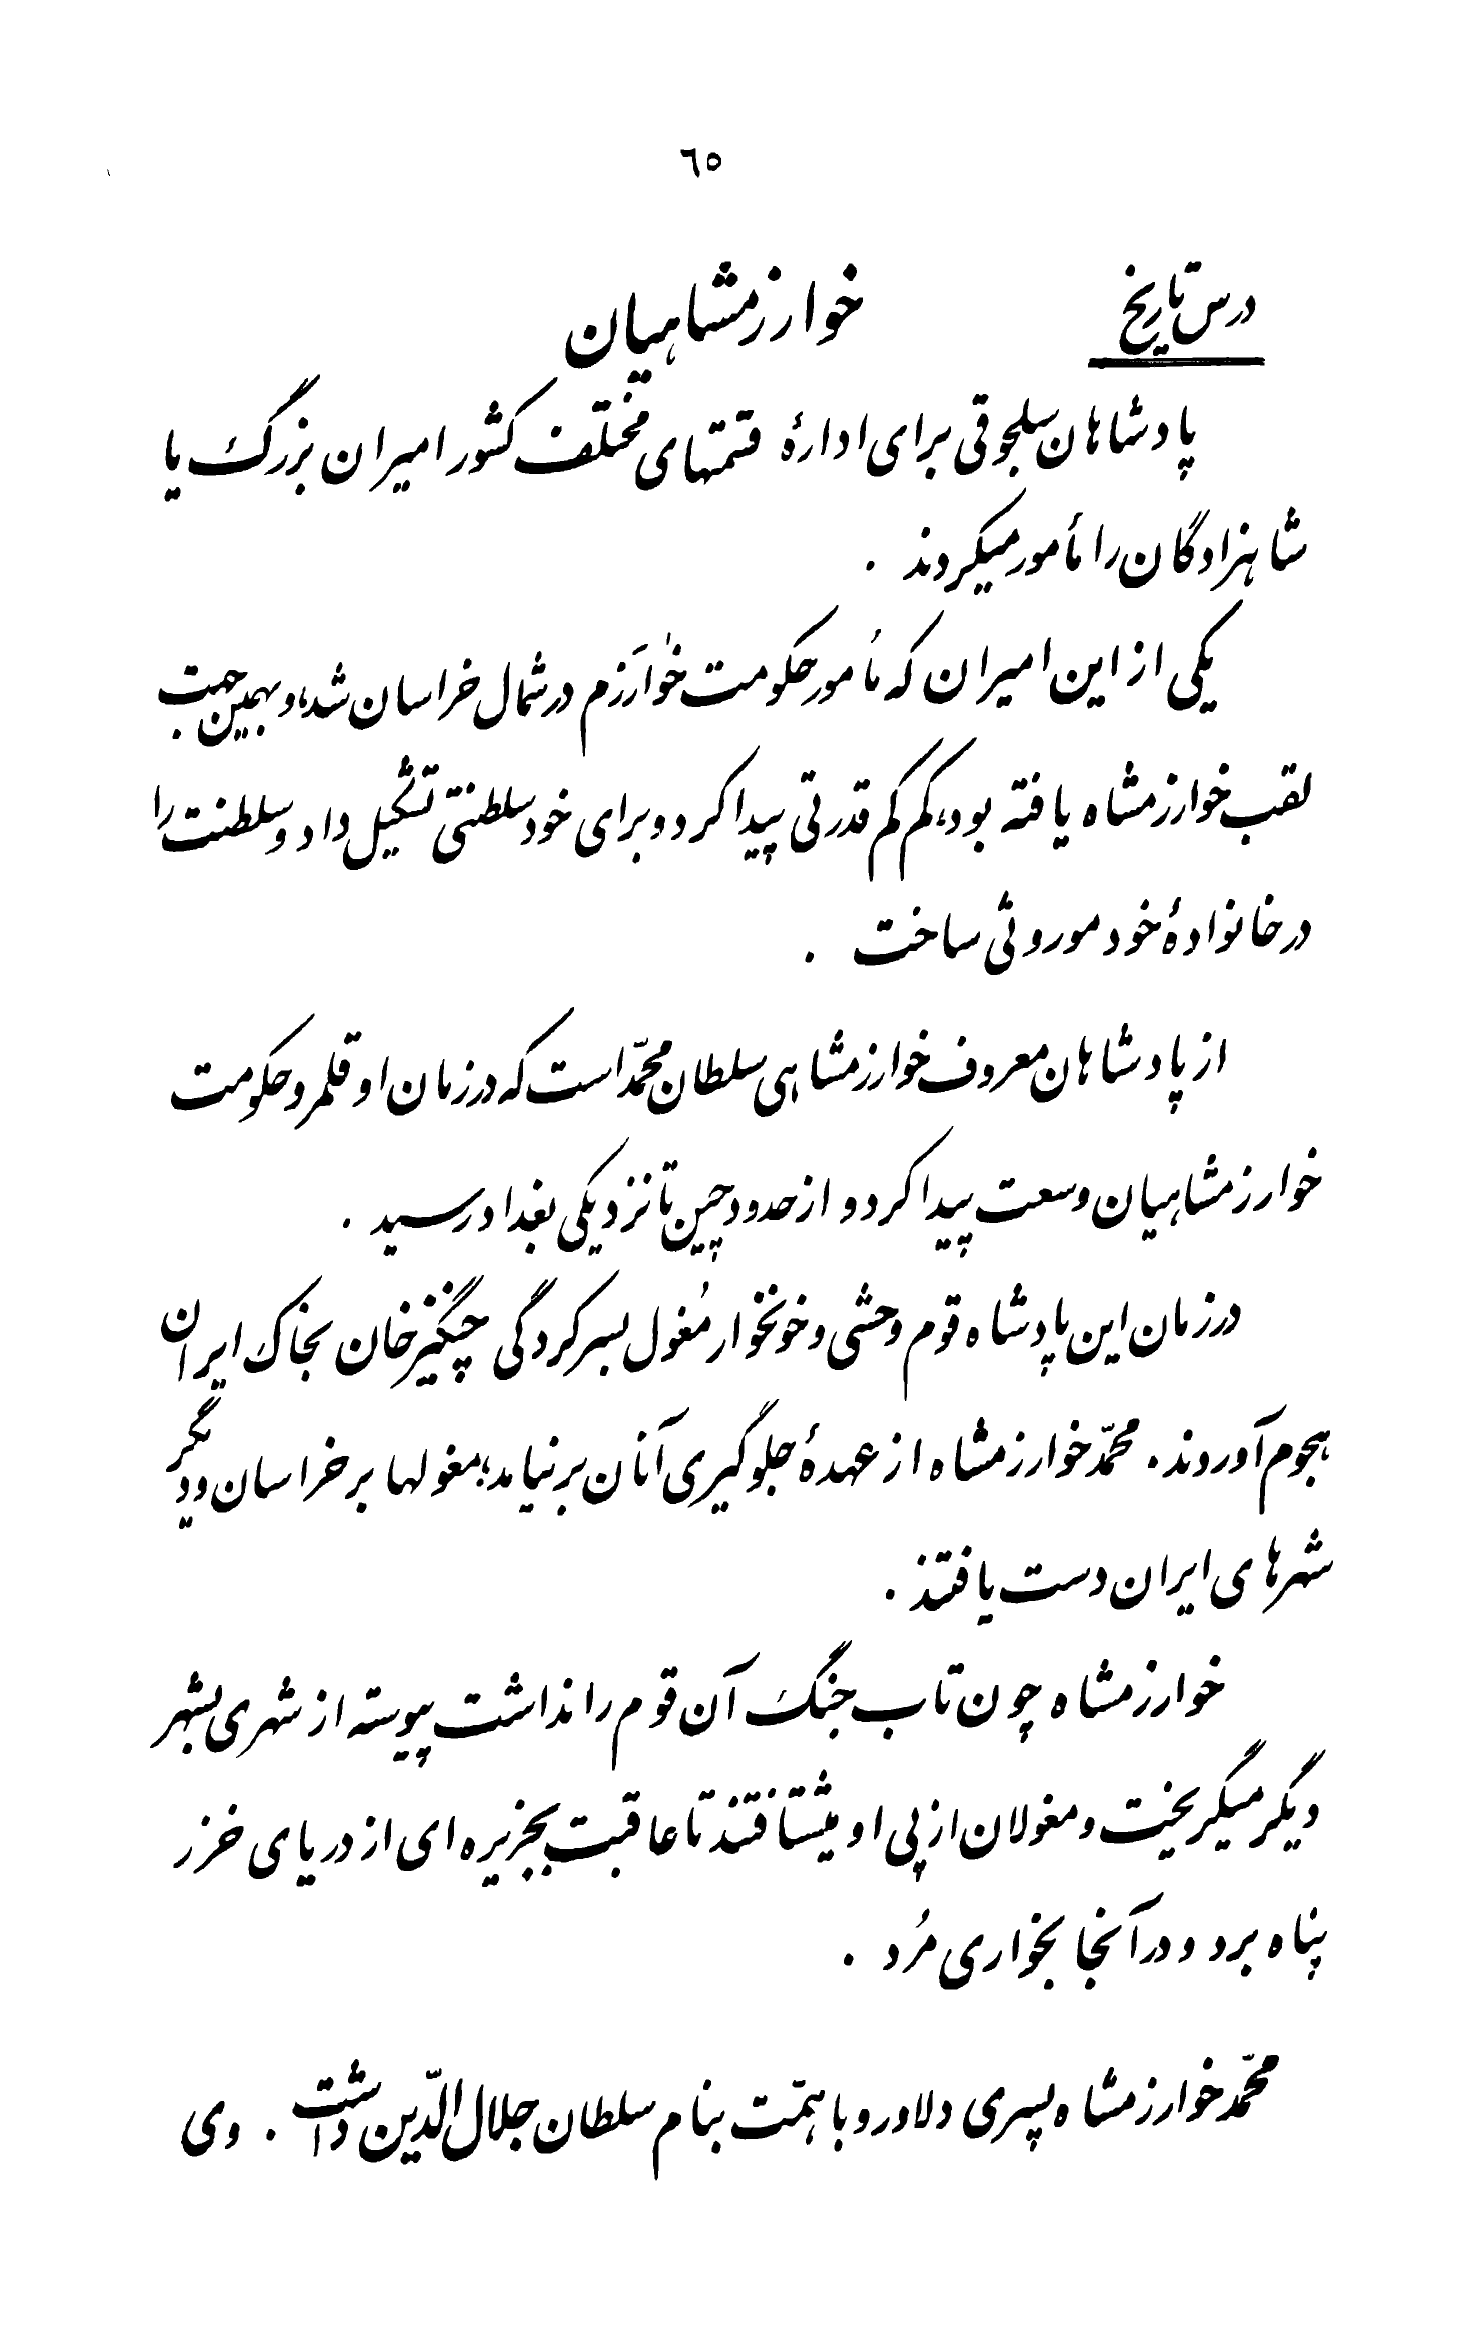 ٦٥
درس تاریخ
خوارزمشاهیان
پادشاهان سلجوقی برای ادارهٔ قسمتهای مختلف کشور امیران بزرگ یا
شاهزادگان را مأمور میکردند .
یکی از این امیران که مأمور حکومت خوارَزم در شمال خراسان شد، و بهمین جهت
لقب خوارزمشاه یافته بود، کم کم قدرتی پیدا کرد و برای خود سلطنتی تشکیل داد و سلطنت را
در خانوادهٔ خود موروثی ساخت .
از پادشاهان معروف خوارزمشاهی سلطان محمّد است که در زمان او قلمرو حکومت
خوارزمشاهیان وسعت پیدا کرد و از حدود چین تا نزدیکی بغداد رسید .
در زمان این پادشاه قوم وحشی و خونخوار مُغول بسرکردگی چنگیزخان بخاک ایران
هجوم آوردند . محمّد خوارزمشاه از عهدهٔ جلوگیری آنان برنیامد؛ مغولها بر خراسان و دیگر
شهرهای ایران دست یافتند .
خوارزمشاه چون تاب جنگ آن قوم را نداشت پیوسته از شهری بشهر
دیگر میگریخت و مغولان از پی او میشتافتند تا عاقبت بجزیره ای از دریای خزر
پناه برد و در آنجا بخواری مُرد .
محمّد خوارزمشاه پسری دلاور و با همّت بنام سلطان جلال الدّین داشت . وی